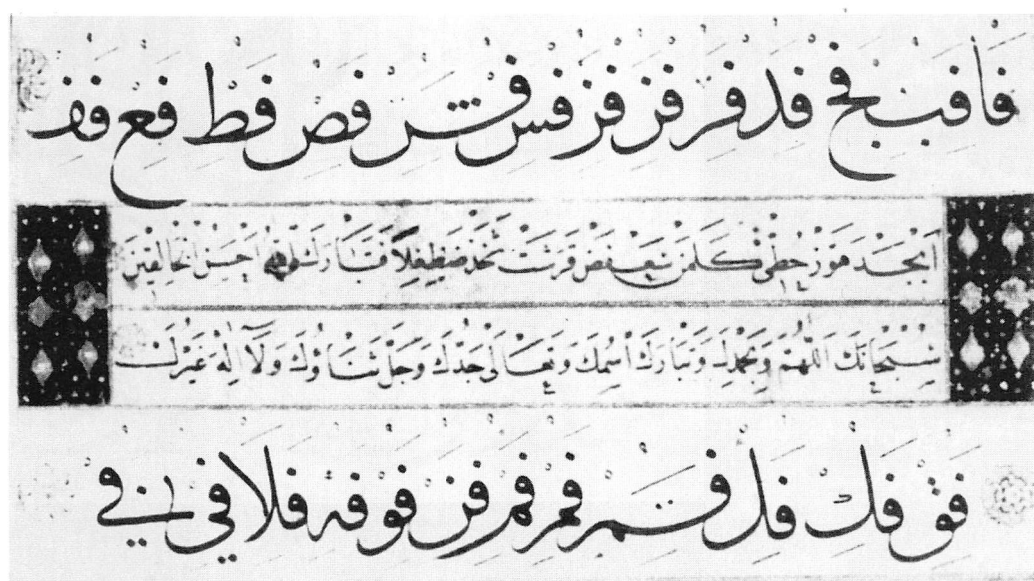 فا فب فج فد فر فز فز فس فش فص فط فع فف
اَبْجَدْ هَوَّزْ حُطِّي كَلَمَنْ سَعْفَصْ قَرَشَتْ ثَخَذْ ضَظِغْلا فَتَبَارَكَ اللهُ اَحْسَنُ الْخَالِقِينَ
سُبْحَانَكَ اللّٰهُمَّ وَبِحَمْدِكَ وَتَبَارَكَ اسْمُكَ وَتَعَالٰى جَدُّكَ وَجَلَّ ثَنَاؤُكَ وَلَا اِلٰهَ غَيْرُكَ
فق فك فل فم فم فم فن فو فه فلا في في